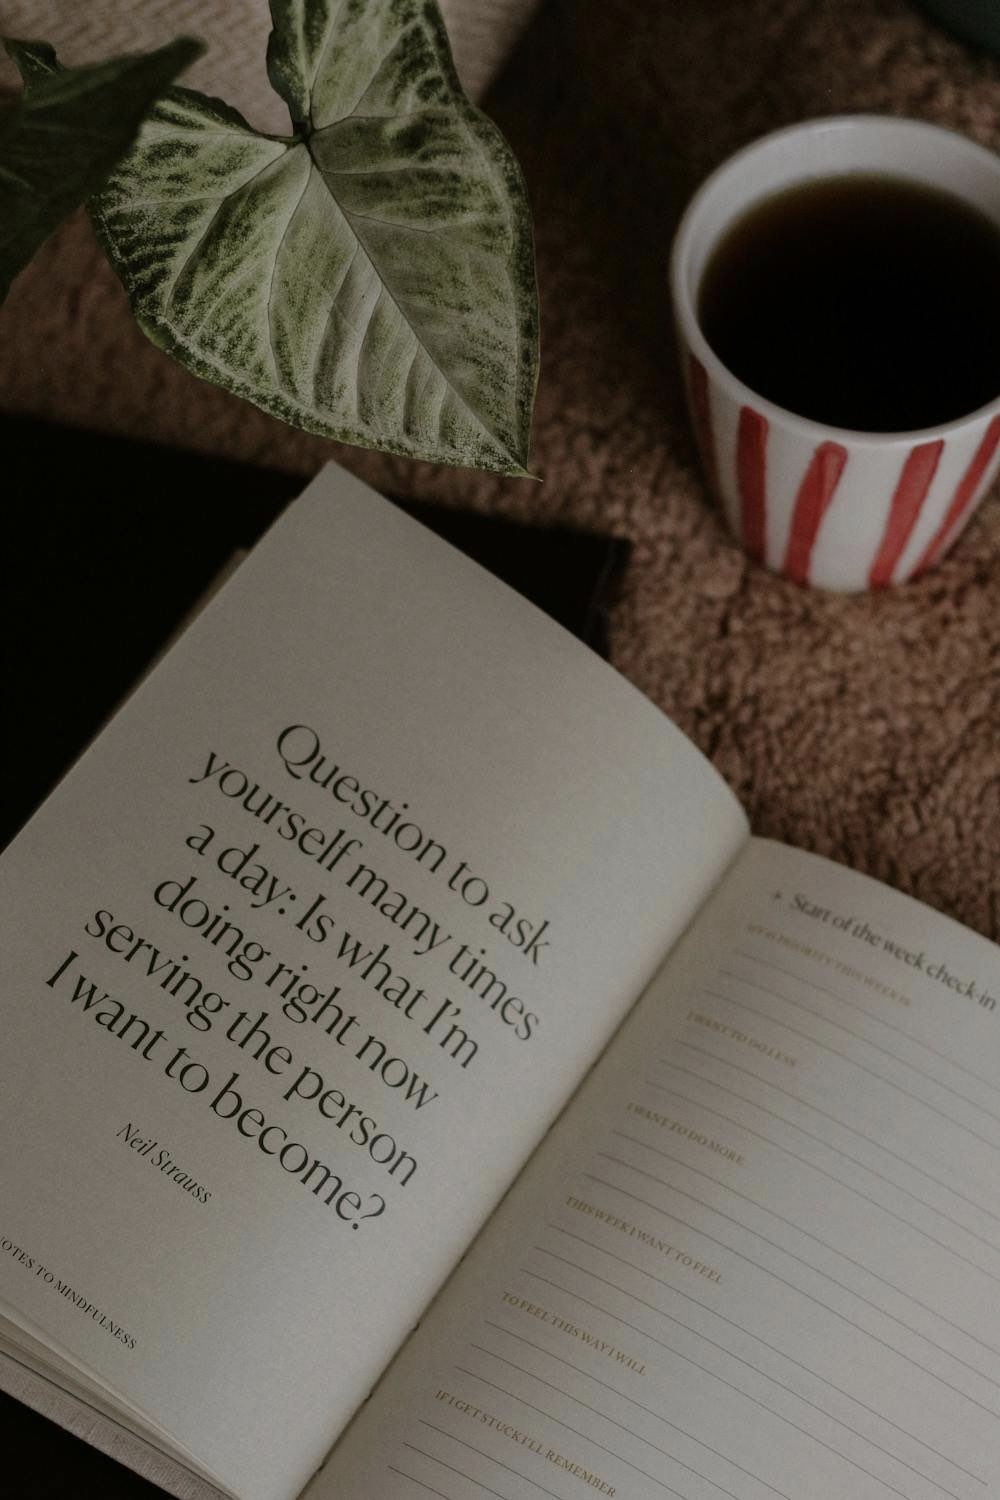 Question to ask
yourself many times
a day: Is what I'm
doing right now
serving the person
I want to become?
Neil Strauss
TO MINDFULNESS
Start of the week check-in
MY #1 PRIORITY THIS WEEK IS
I WANT TO DO LESS
I WANT TO DO MORE
THIS WEEK I WANT TO FEEL
TO FEEL THIS WAY I WILL
IF I GET STUCK I'LL REMEMBER